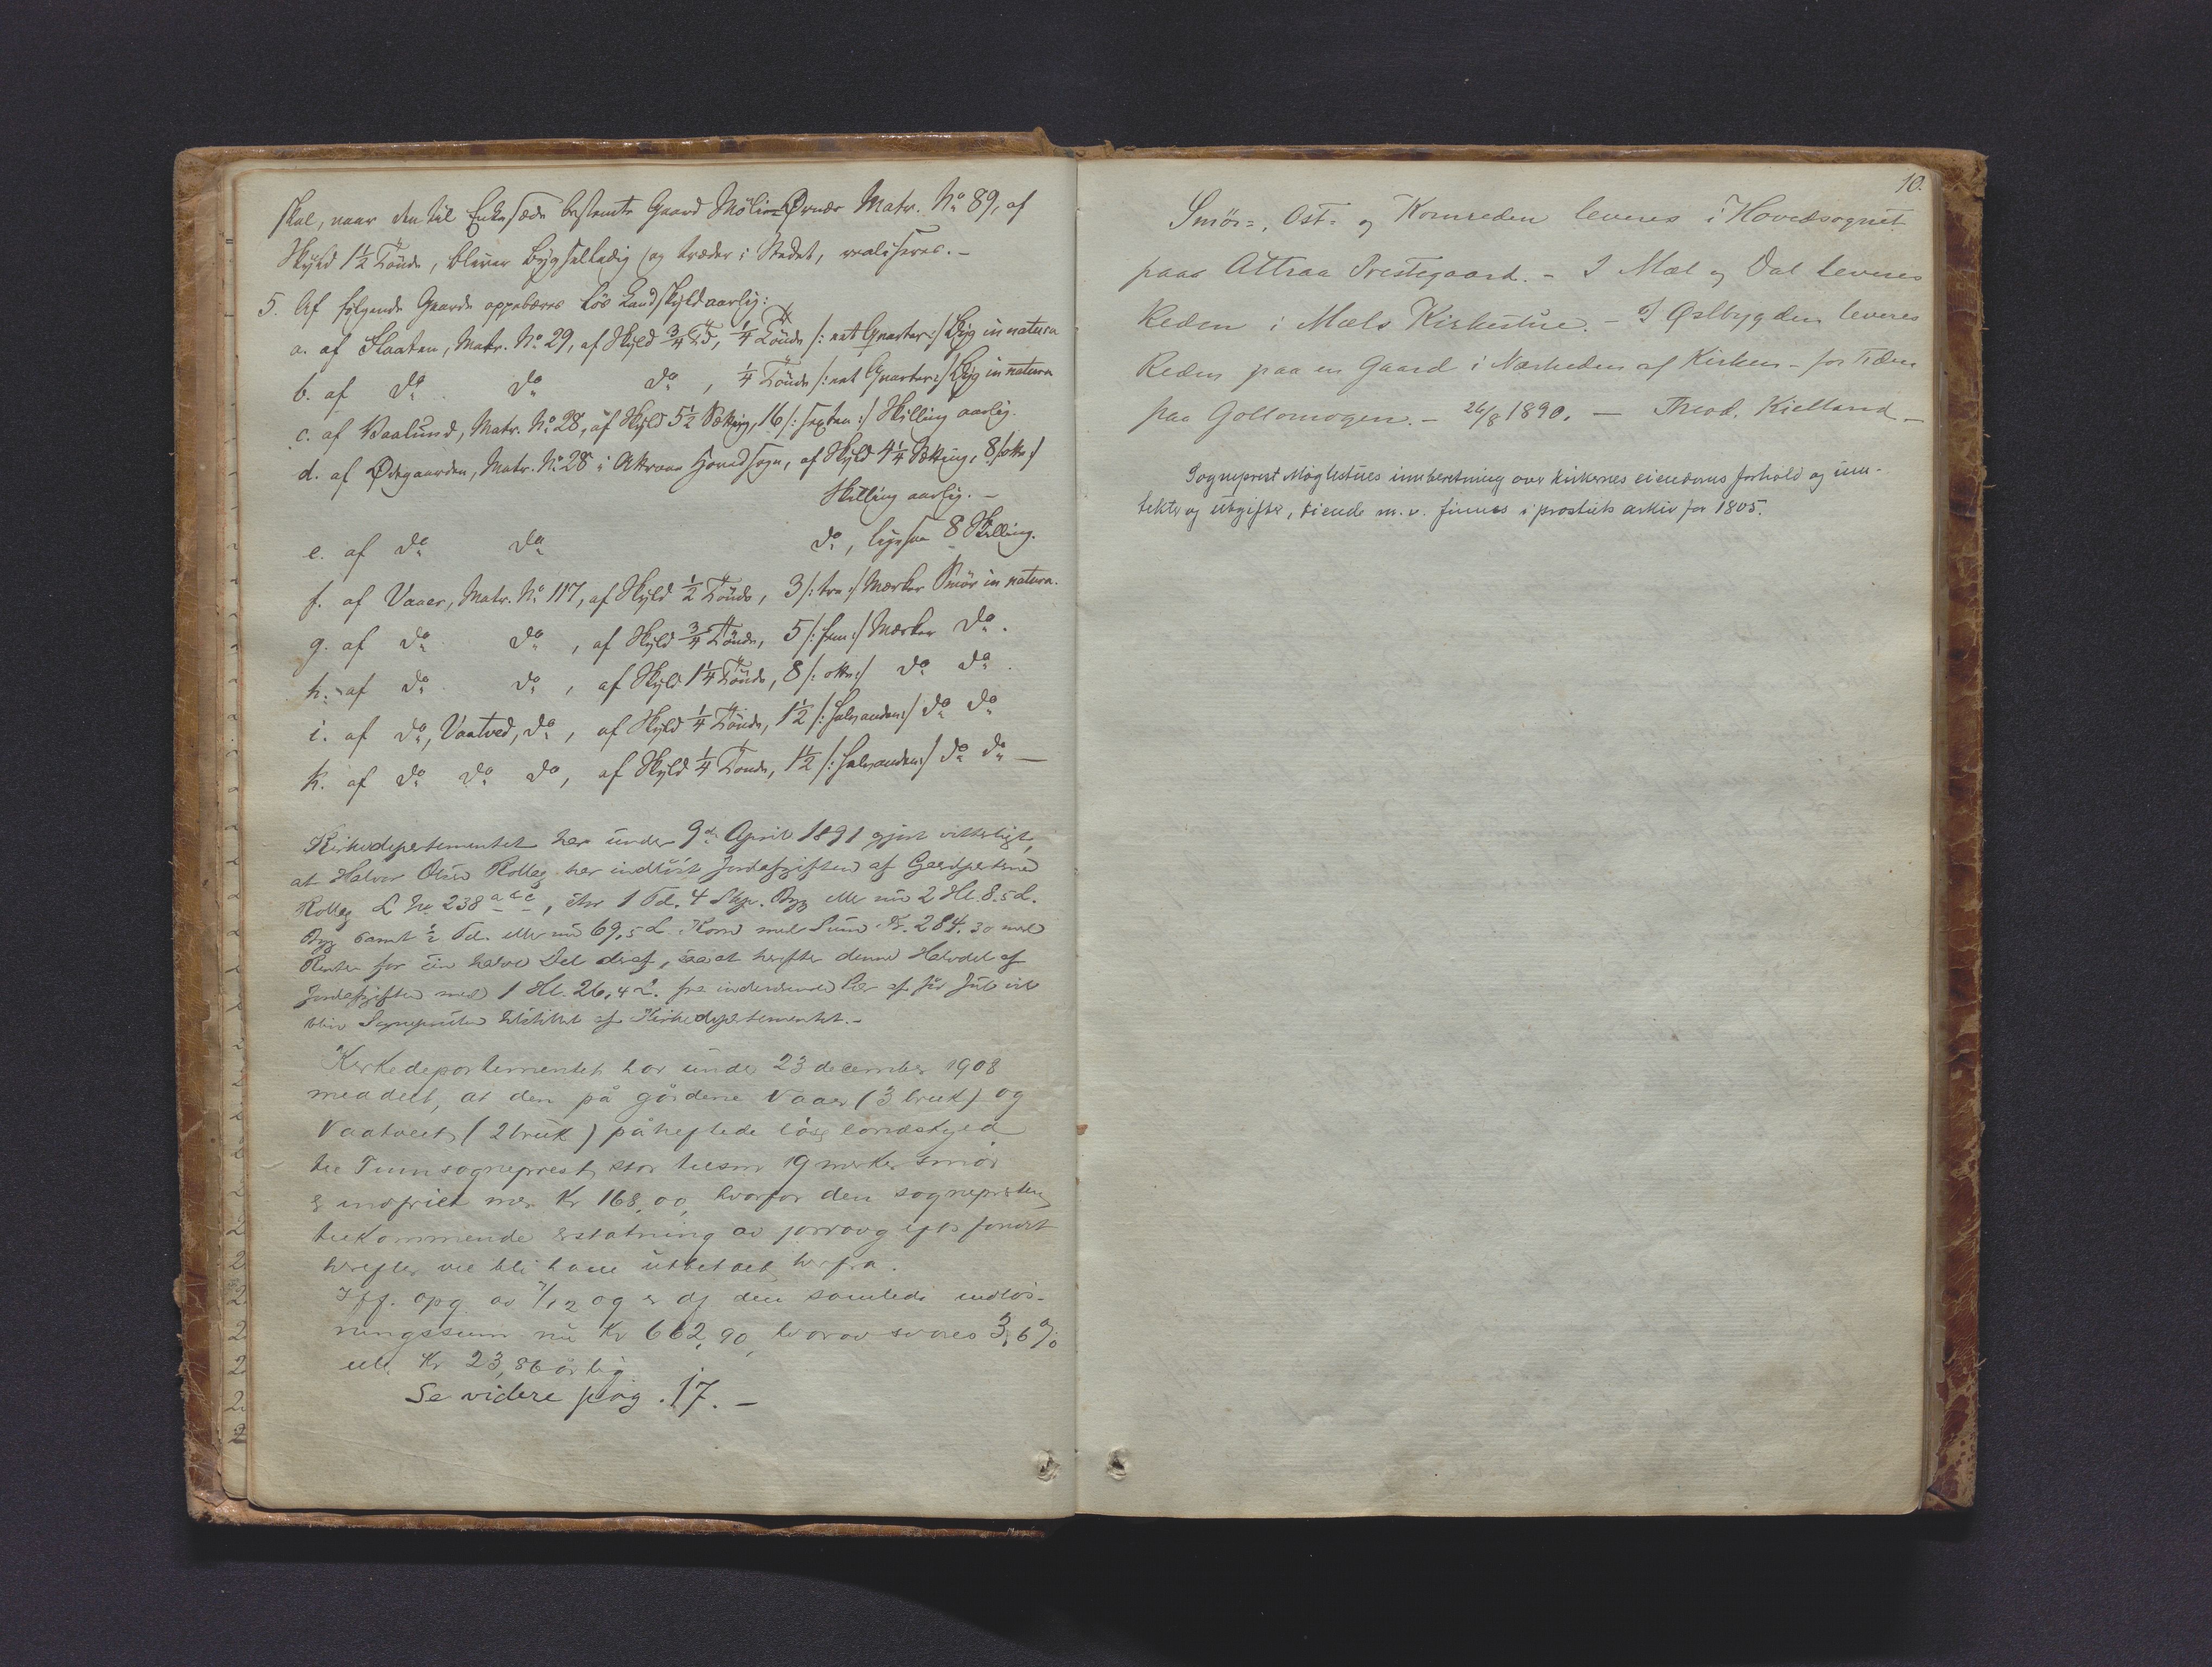 skal, naar den til Enkesæde bestemte Gaard Möli-Ørnæs Matr. No 89, af
Skyld 1½ Tönde, bliver bygselledig og træder i Stedet, realiseres.-
5. Af følgende Gaarde oppebæres lös Landskyld aarlig:
a. af Slaaten, Matr. No 29, af Skyld ¾ Td, ¼ Tönde /: eet Quarter :/ Byg in natura
b. af do do do, ¼ Tönde /: eet Quarter :/ Byg in natura
c. af Baalund, Matr. No 28, af Skyld 5½ Sætting, 16 /: sexten :/ Skilling aarlig.
d. af Ødegaarden, Matr. No 28 i Attraae Hovedsogn, af Skyld 4¼ Sætting, 8 /: otte :/
Skilling aarlig.-
e. af do do do, ligesaa 8 Skilling.
f. af Vaaer, Matr. No 117, af Skyld ½ Tönde, 3 /: tre :/ Mærker Smör in natura.
g. af do do, af Skyld ¾ Tönde, 5 /: fem :/ Mærker do.
h. af do do, af Skyld 1¼ Tönde, 8 /: otte :/ do do.
i. af do, Vaatved, do, af Skyld ¼ Tönde, 1½ /: halvanden :/ do do
k. af do do do, af Skyld ¼ Tønde, 1½ /: halvanden :/ do do —
Kirkedepartementet har under 9de April 1891 gjort vitterligt,
at Halvor Olsen Rollag har indlöst Jordafgiften af Gaardparterne
Rollag L No 238 a b c, stor 1 Td. 4 Skp. Byg eller nu 2 Hl. 8.5 L.
Byg samt ½ Td. eller nu 69,5 L Korn med Sum Kr. 284.30 med
Renter for en halv Del deraf, saa at herefter denne Halvdel af
Jordafgiften med 1 Hl. 26,4 L. fra indeværende Aar af før Jul vil
blive Sognepresten tilstillet af Kirkedepartementet.-
Kirkedepartementet har under 23 december 1908
meddelt, at den på gårdene Vaaer (3 bruk) og
Vaatveit (2 bruk) påheftede løse landskyld
til Tinn sogneprest, stor tilsm 19 merker smør
er indfriet med Kr 168,00, hvorfor den sognepresten
tilkommende erstatning av jordavgiftsfondet
herefter vil bli ham utbetalt herfra.
Iflg. opg. av 7/12 og er af den samlede indløs-
ningssum nu Kr 662,90, hvorav svares 3,6 %
ell. Kr 23,86 årlig.
Se videre pag. 17.-
10.
Smör=, Ost= og Kornreden leveres i Hovedsognet
paa Attraa Prestegaard. - I Mæl og Dal leveres
Reden i Mæls Kirkestue. - I Østbygden leveres
Reden paa en Gaard i Nærheden af Kirken - for Tiden
paa Gollomogen. - 26/8 1890. — Theod. Kielland -
Sogneprest Møglestues innberetning over kirkernes eiendoms forhold og inn-
tekter og utgifter, tiende m.v. finnes i prostiets arkiv for 1805.